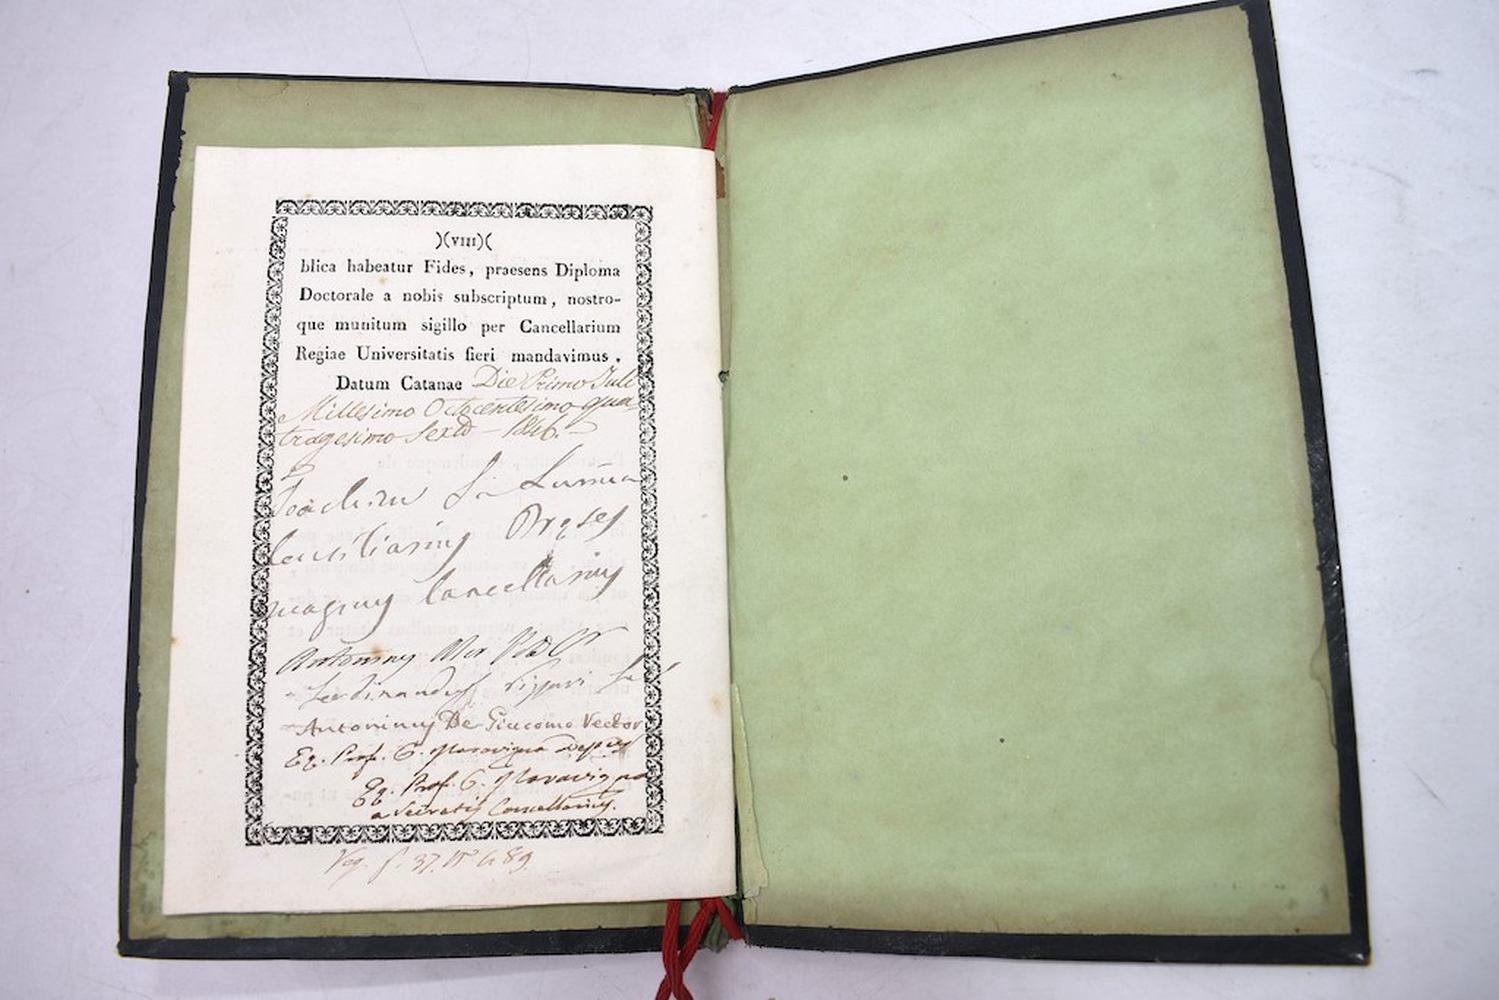 )(VIII)(
blica habeatur Fides, praesens Diploma
Doctorale a nobis subscriptum, nostro-
que munitum sigillo per Cancellarium
Regiae Universitatis fieri mandavimus.
Datum Catanae Die Primo Julii
Millesimo Octocentesimo qua-
tragesimo Sexto - 1846.
Praeses
magnus Cancellarius
Antoninus
Ferdinandus
Antoninus De Giacomo Rector
Eq. Prof. C. Maravigna
Eq. Prof. C. Maravigna
a Secretis Cancellarius.